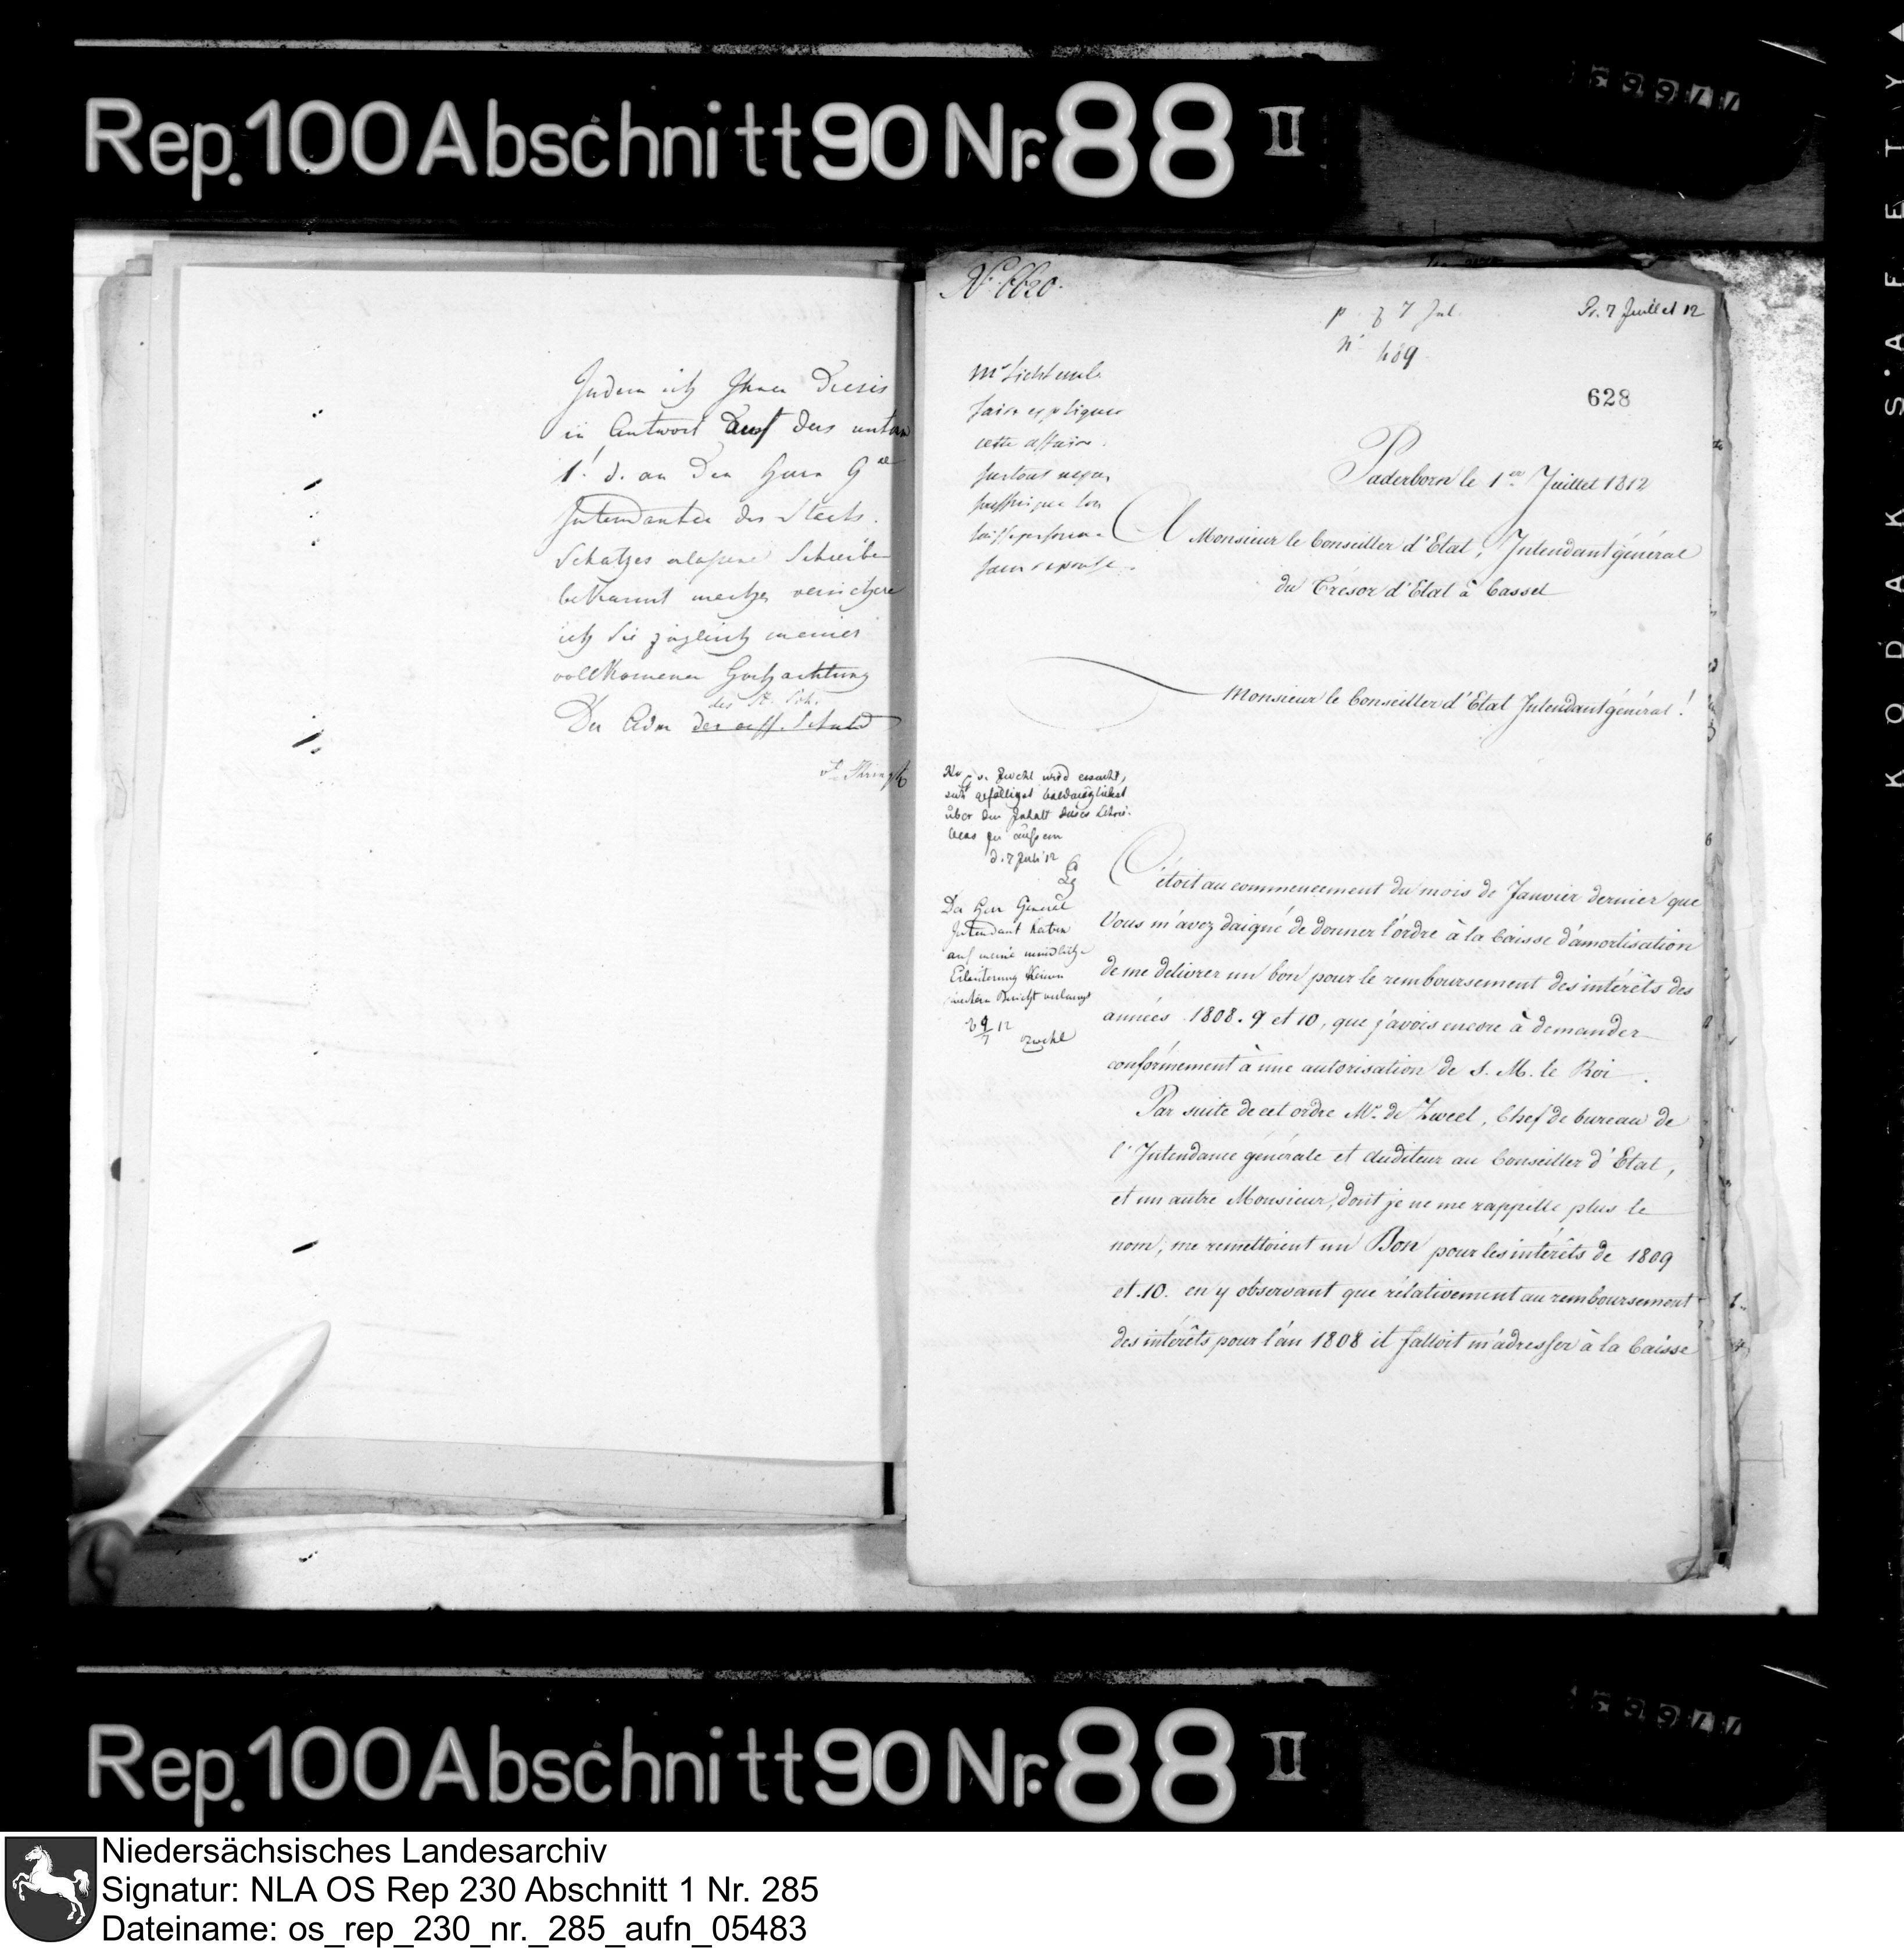 Rep. 100 Abschnitt 90 Nr. 88 II
KODAK SAFETY
Indem ich Ihnen dieses
in Antwort auf das unterm
1. d. an den Herrn Gal
Intendanten des Staats
Schatzes erlassene Schreiben
bekannt mache, versichere
ich Sie zugleich meiner
vollkomenen Hochachtung
des St. Sch.
Der Adm der öff. Schuld
No 6620.
p. 7 Jul.
No 489
Pr. 7 Juillet 12
628
Mr
faire expliquer
cette affaire.
surtout
sans reponse.
Paderborn le 1er Juillet 1812
A Monsieur le Conseiller d'Etat, Intendant général
du Trésor d'Etat à Cassel
Monsieur le Conseiller d'Etat Intendant général!
H. v. Zwehl wird ersucht,
sich gefälligst baldmöglichst
über den Inhalt dieses Schrei-
bens zu äußern
d. 7 Juli 12
Der Herr General
Intendant haben
auf meine mündliche
Erläuterung keinen
weitern Bericht verlangt
d 9/7 12
Zwehl
C'étoit au commencement du mois de Janvier dernier que
Vous m'avez daigné de donner l'ordre à la Caisse d'amortisation
de me délivrer un bon pour le remboursement des intérêts des
années 1808. 9 et 10, que j'avois encore à demander
conformement à une autorisation de S. M. le Roi.
Par suite de cet ordre Mr. de Zweel, Chef de bureau de
l'Intendance générale et Auditeur au Conseiller d'Etat,
et un autre Monsieur, dont je ne me rappelle plus le
nom, me remettoient un Bon pour les intérêts de 1809
et 10. en y observant que rélativement au remboursement
des intérêts pour l'an 1808 il falloit m'adresser à la Caisse
Rep. 100 Abschnitt 90 Nr. 88 II
Niedersächsisches Landesarchiv
Signatur: NLA OS Rep 230 Abschnitt 1 Nr. 285
Dateiname: os_rep_230_nr._285_aufn_05483